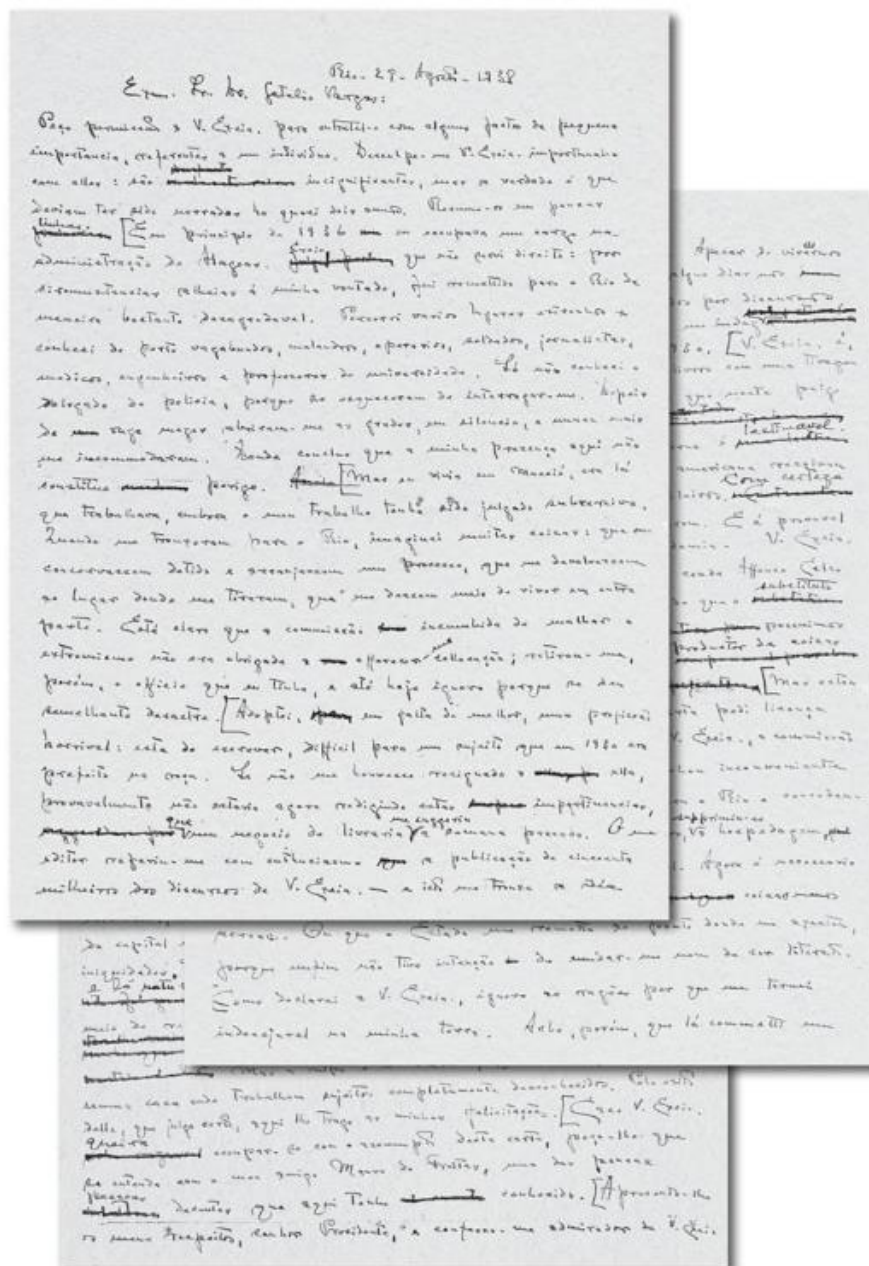 Rio - 29 - Agosto - 1938
Exm. Sr. Dr. Getulio Vargas:
Peço permissão a V. Excia. para entretel-o com alguns factos de pequena
importancia, referentes a um individuo. Desculpe-me V. Excia. importunal-o
com elles: são insignificantes, mas a verdade é que
deviam ter sido narrados ha quasi dois annos. Resumo-os em poucas
linhas. [Em principio de 1936 eu occupava um cargo na
administração de Alagoas. Creio que não servi direito: por
circumstancias alheias á minha vontade, fui remettido para o Rio de
maneira bastante desagradavel. Percorri varios lugares estranhos e
conheci de perto vagabundos, malandros, operarios, soldados, jornalistas,
medicos, engenheiros e professores da universidade. Só não conheci o
delegado de policia, porque se esqueceram de interrogar-me. Depois
de onze mezes abriram-me as grades, em silencio, e nunca mais
me incommodaram. Donde concluo que a minha presença aqui não
constitue perigo. [Mas eu vivia em Maceió, era lá
que trabalhava, embora o meu trabalho tenha sido julgado subversivo.
Quando me trouxeram para o Rio, imaginei muitas coisas: que me
conservassem detido e arranjassem um processo, que me devolvessem
ao lugar donde me tiraram, que me dessem meio de viver em outra
parte. Está claro que a commissão incumbida de malhar o
extremismo não era obrigada a offerecer-me collocação; retirou-me,
porém, o officio que eu tinha, e até hoje ignoro porque se deu
semelhante desastre. [Adoptei, em falta de melhor, uma profissão
horrivel: esta de escrever, difficil para um sujeito que em 1930 era
prefeito na roça. Se não me houvesse resignado a ella,
provavelmente não estaria agora redigindo estas impertinencias,
que um negocio de livraria me suggeriu a semana passada. O meu
editor referiu-me com enthusiasmo a publicação de cincoenta
milheiros dos discursos de V. Excia. — e isto me trouxe a idéa
Apesar de vivermos
algus dias nos
por discursos
[V. Excia. é,
livros com uma tiragem
que neste paiz
lastimavel.
americana
Com certeza
E é provavel
V. Excia.
conde Affonso Celso
que o substituto
proximos
productor de coisas
[Mas estou
pedi licença
V. Excia., a commissão
inconveniente
o Rio e
supprimiu-se
hospedagem,
Agora é necessario
coisas
Ou que o Estado me remetta ao ponto donde me afastou,
porque emfim não tive intenção de mudar-me nem de ser literato.
Como declarei a V. Excia., ignoro as razões por que me tornei
indesejavel na minha terra. Acho, porém, que lá commetti um
da capital
iniquidades,
meio de
numa casa onde trabalham sujeitos completamente desconhecidos. Pelo exito
delle, que julgo certo, aqui lhe trago as minhas felicitações. [Caso V. Excia.
queira occupar-se com o assumpto desta carta, peço-lhe que
se entenda com o meu amigo Mauro de Freitas, uma das poucas
pessoas decentes que aqui tenho conhecido. [Apresento-lhe
os meus respeitos, senhor Presidente, e confesso-me admirador de V. Excia.